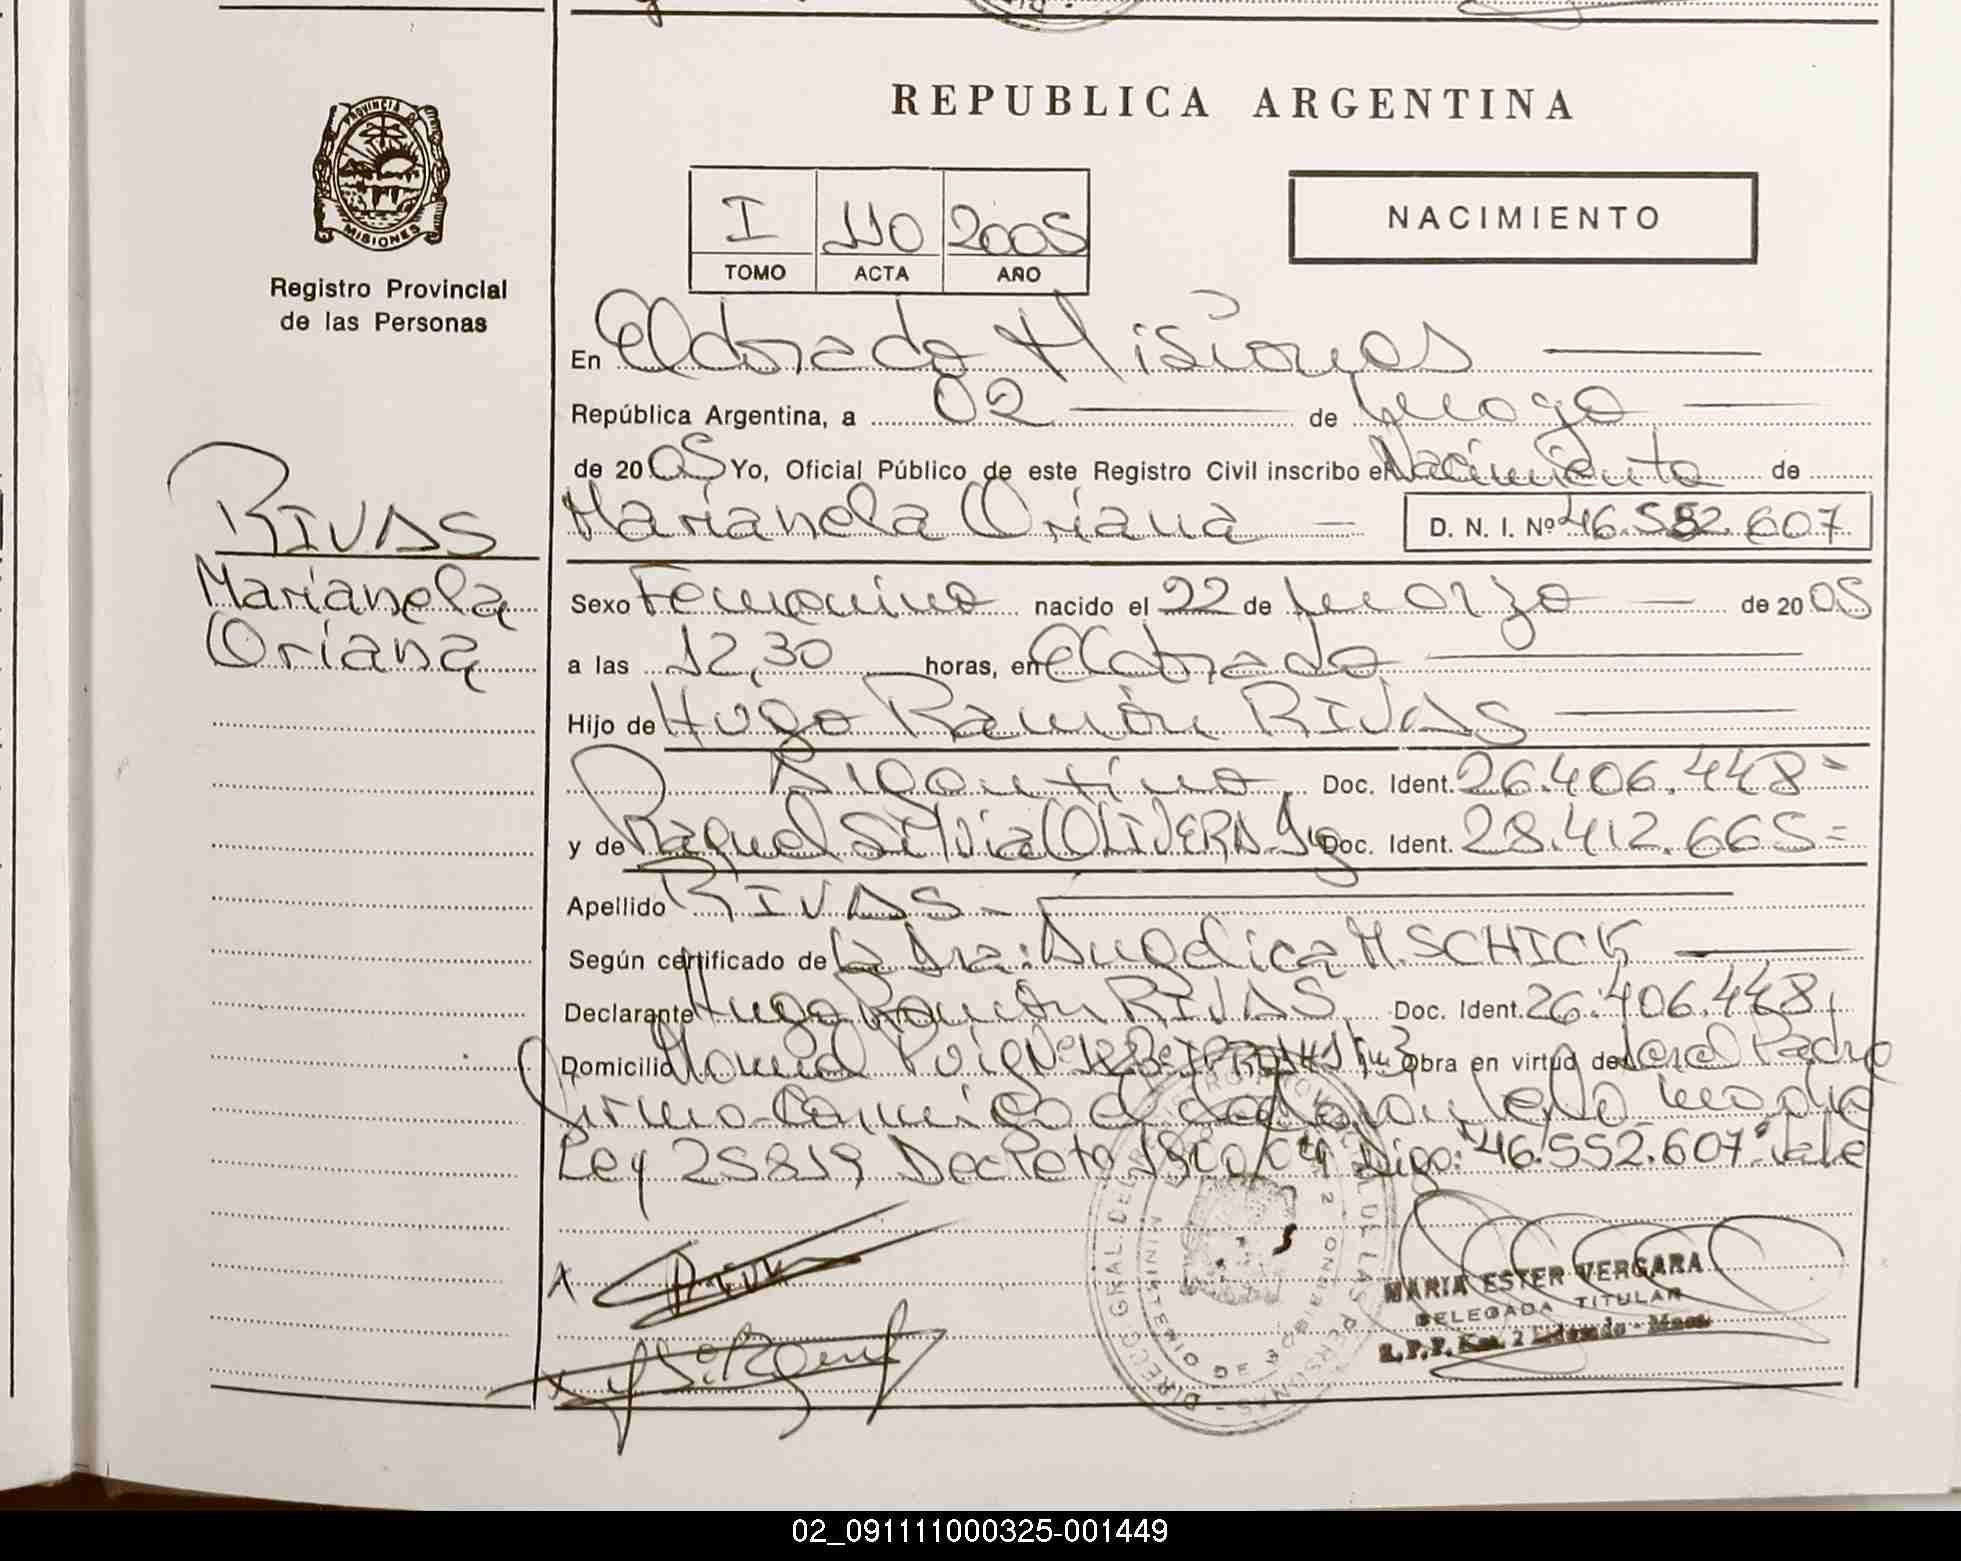 REPUBLICA ARGENTINA
PROVINCIA DE
MISIONES
Registro Provincial
de las Personas
I 110 2005
TOMO ACTA AÑO
NACIMIENTO
En Eldorado Misiones
República Argentina, a 02 de mayo
de 2005 Yo, Oficial Público de este Registro Civil inscribo el Nacimiento de
Marianela Oriana D. N. I. Nº 46.552.607
RIVAS
Marianela
Oriana
Sexo Femenino nacido el 22 de marzo de 2005
a las 12,30 horas, en Eldorado
Hijo de Hugo Ramón RIVAS
Argentino Doc. Ident. 26.406.448=
y de Raquel Silvia OLIVERA Arg Doc. Ident. 28.412.665=
Apellido RIVAS
Según certificado de la Dra: Angelica M. SCHICK
Declarante Hugo Ramón RIVAS Doc. Ident. 26.406.448
Domicilio Manuel Obra en virtud de ser el Padre
firma conmigo el declarante la madre
Ley 25819 Decreto Digo: "46.552.607" Vale
MARIA ESTER VERGARA
DELEGADA TITULAR
R.P.P. Km. 2 Eldorado - Mnes.
02_091111000325-001449